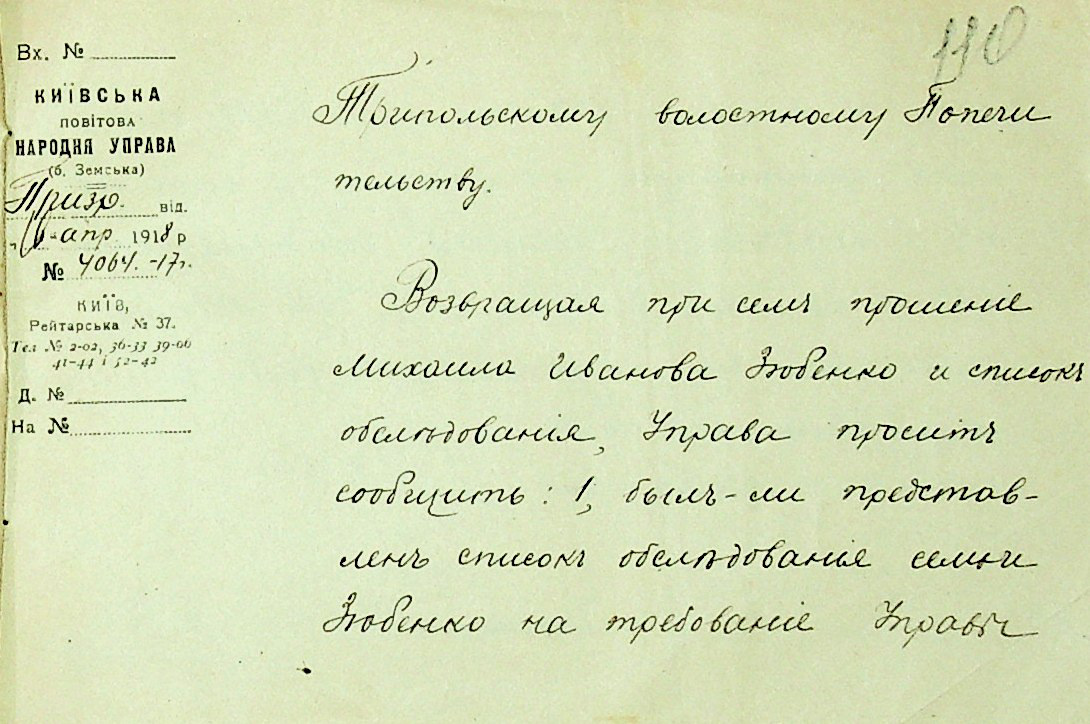 110
Вх. №
КИЇВСЬКА
ПОВІТОВА
НАРОДНЯ УПРАВА
(б. Земська)
Призр. від.
апр. 1918 р
№ 4064.-17г.
КИЇВ,
Рейтарська № 37.
Тел № 2-02, 36-33 39-06
41-44 і 52-42
Д. №
На №
Трипольскому волостному Попечи
тельству.
Возвращая при семъ прошеніе
Михаила Иванова Зюбенко и списокъ
обслѣдованія, Управа проситъ
сообщить: 1, былъ-ли представ-
ленъ списокъ обслѣдованія семьи
Зюбенко на требованіе Управы